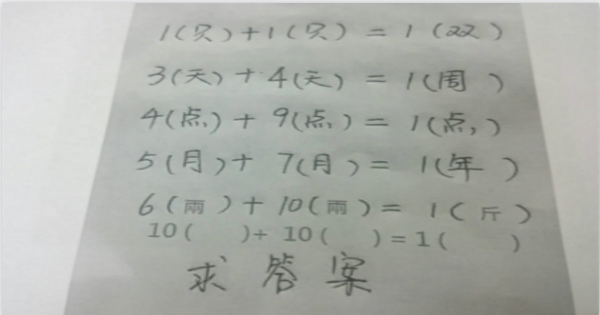 1(只)+1(只)=1(双)
3(天)+4(天)=1(周)
4(点)+9(点)=1(点)
5(月)+7(月)=1(年)
6(兩)+10(兩)=1(斤)
10( )+10( )=1( )
求答案